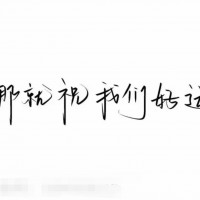 那就祝我们好运